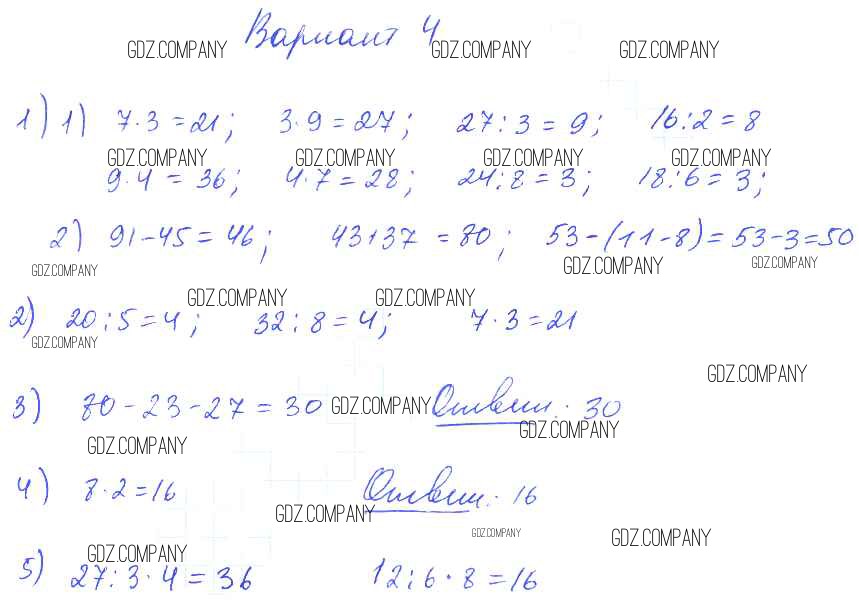 Вариант 4
GDZ.COMPANY GDZ.COMPANY GDZ.COMPANY
1) 1) 7·3=21; 3·9=27; 27:3=9; 16:2=8
GDZ.COMPANY GDZ.COMPANY GDZ.COMPANY GDZ.COMPANY
9·4=36; 4·7=28; 24:8=3; 18:6=3;
2) 91-45=46; 43+37=80; 53-(11-8)=53-3=50
GDZ.COMPANY GDZ.COMPANY GDZ.COMPANY
GDZ.COMPANY GDZ.COMPANY
2) 20:5=4; 32:8=4; 7·3=21
GDZ.COMPANY
GDZ.COMPANY
3) 80-23-27=30 GDZ.COMPANY Ответ: 30
GDZ.COMPANY GDZ.COMPANY
4) 8·2=16 Ответ: 16
GDZ.COMPANY GDZ.COMPANY GDZ.COMPANY
GDZ.COMPANY
5) 27:3·4=36 12:6·8=16